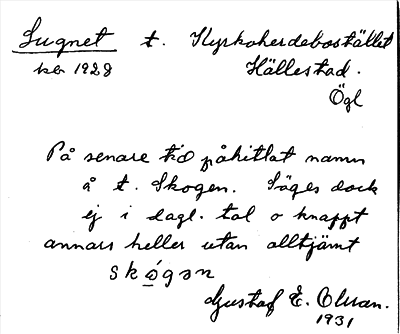 Lugnet t. Kyrkoherdebostället
ker 1928 Hällestad.
Ögl
På senare tid påhittat namn
å t. Skogen. Säges dock
ej i dagl. tal o knappt
annars heller utan alltjämt
skógən
Gustaf E. Olsson.
1931